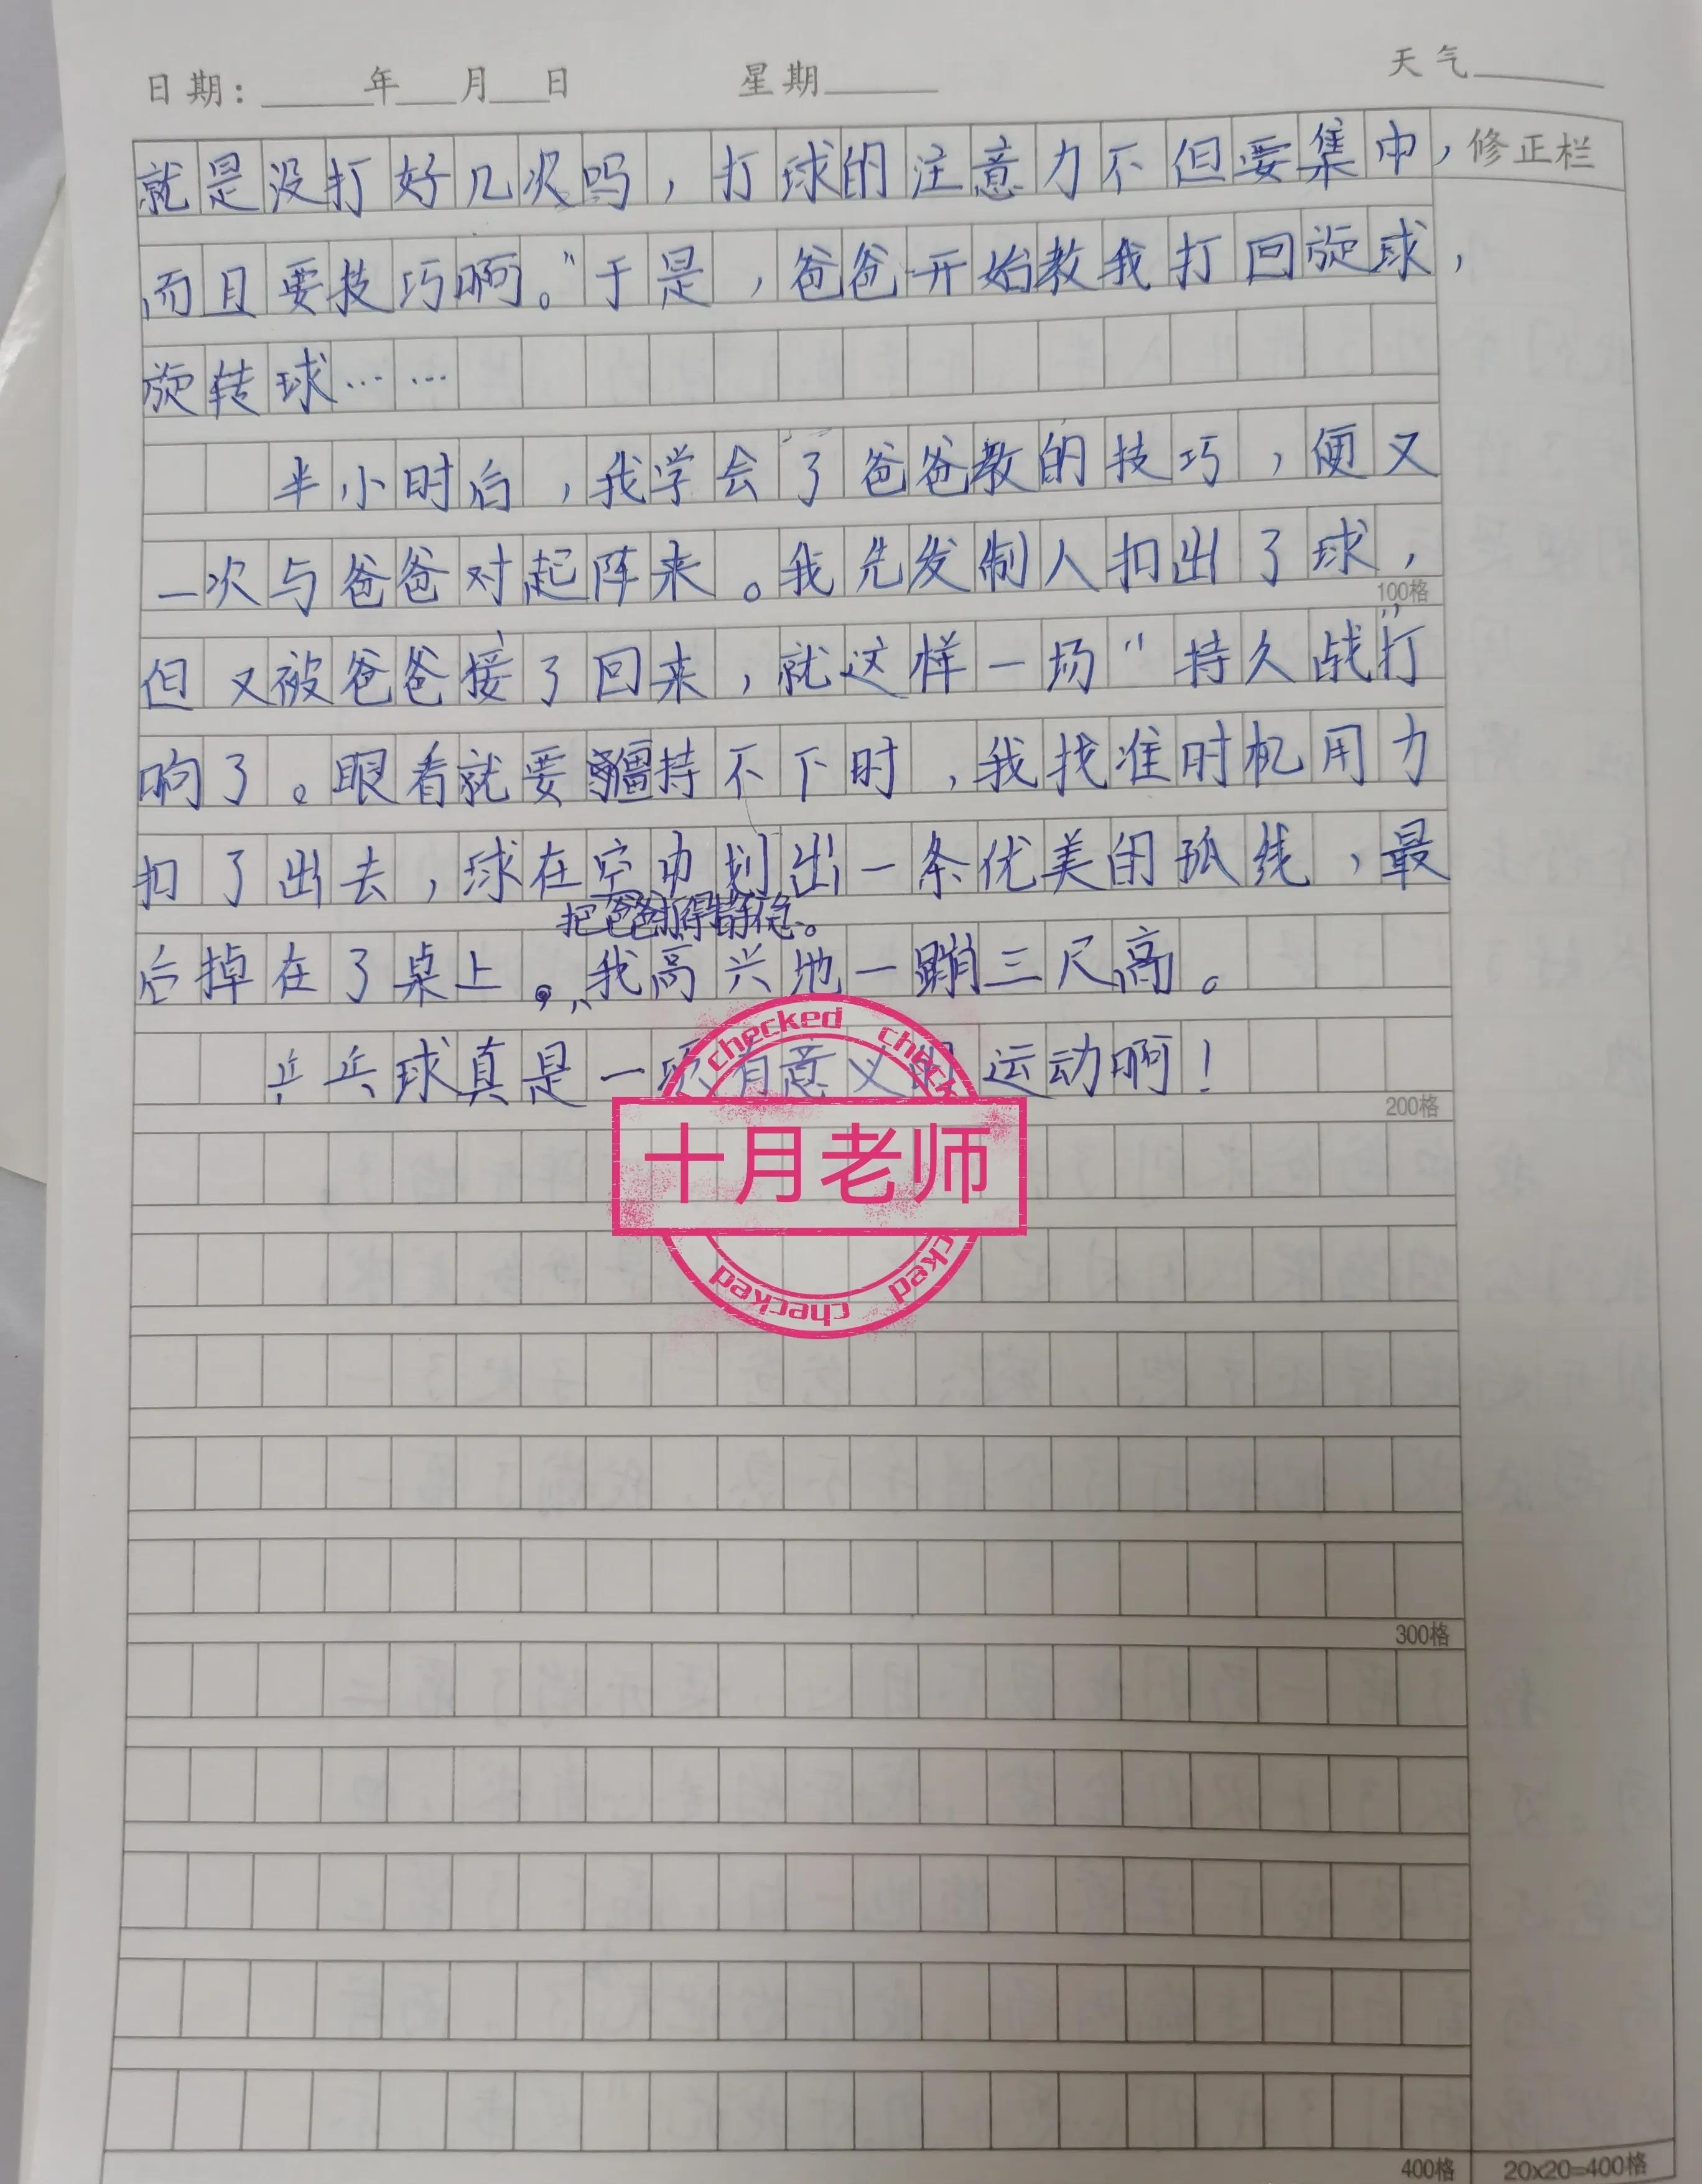 日期：______年___月___日 星期______ 天气______
就是没打好几次吗，打球的注意力不但要集中，
修正栏
而且要技巧啊。”于是，爸爸开始教我打回旋球，
旋转球……
半小时后，我学会了爸爸教的技巧，便又
一次与爸爸对起阵来。我先发制人扣出了球，
100格
但又被爸爸接了回来，就这样一场“持久战”打
响了。眼看就要疆持不下时，我找准时机用力
扣了出去，球在空中划出一条优美的孤线，最
把爸爸打得
后掉在了桌上。，我高兴地一蹦三尺高。
乒乓球真是一项有意义的运动啊！
200格
checked check
十月老师
checked checked
300格
400格
20x20=400格